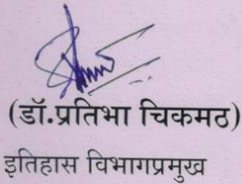 (डॉ.प्रतिभा चिकमठ)
इतिहास विभागप्रमुख